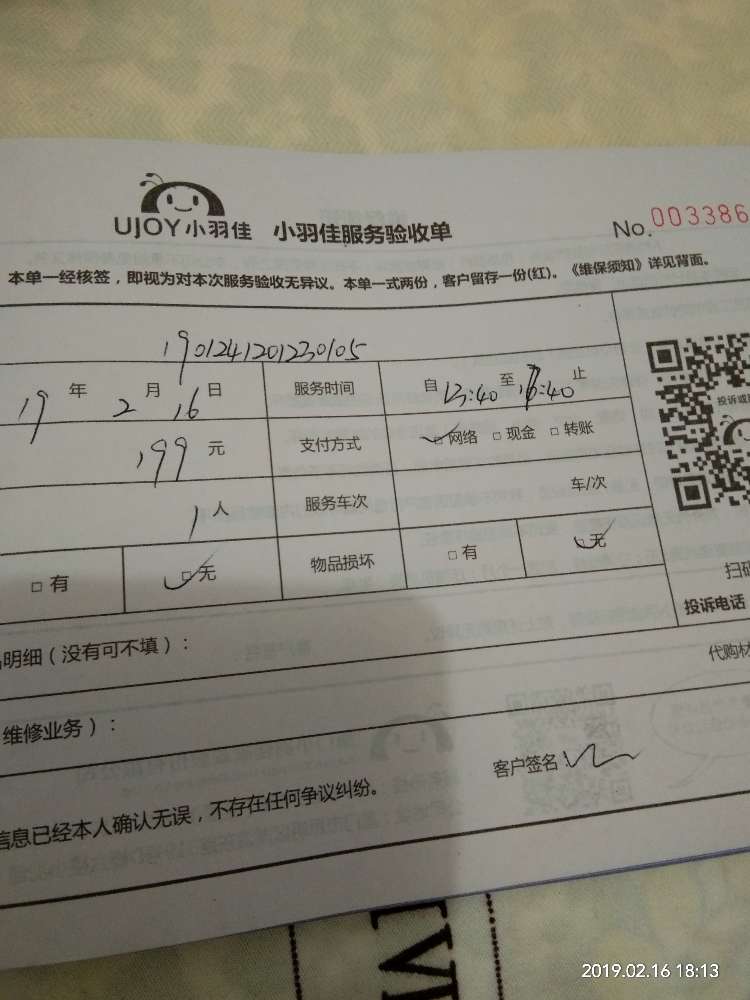 UJOY小羽佳 小羽佳服务验收单 No.003386
本单一经核签，即视为对本次服务验收无异议。本单一式两份，客户留存一份(红)。《维保须知》详见背面。
1901241201230105
19年2月16日 服务时间 自13:40至17:40止
199元 支付方式 ☑网络 □现金 □转账
1人 服务车次 车/次
□有 ☑无 物品损坏 □有 ☑无
投诉或
扫码
投诉电话
明细（没有可不填）：
代购材
维修业务）：
客户签名：
信息已经本人确认无误，不存在任何争议纠纷。
2019.02.16 18:13